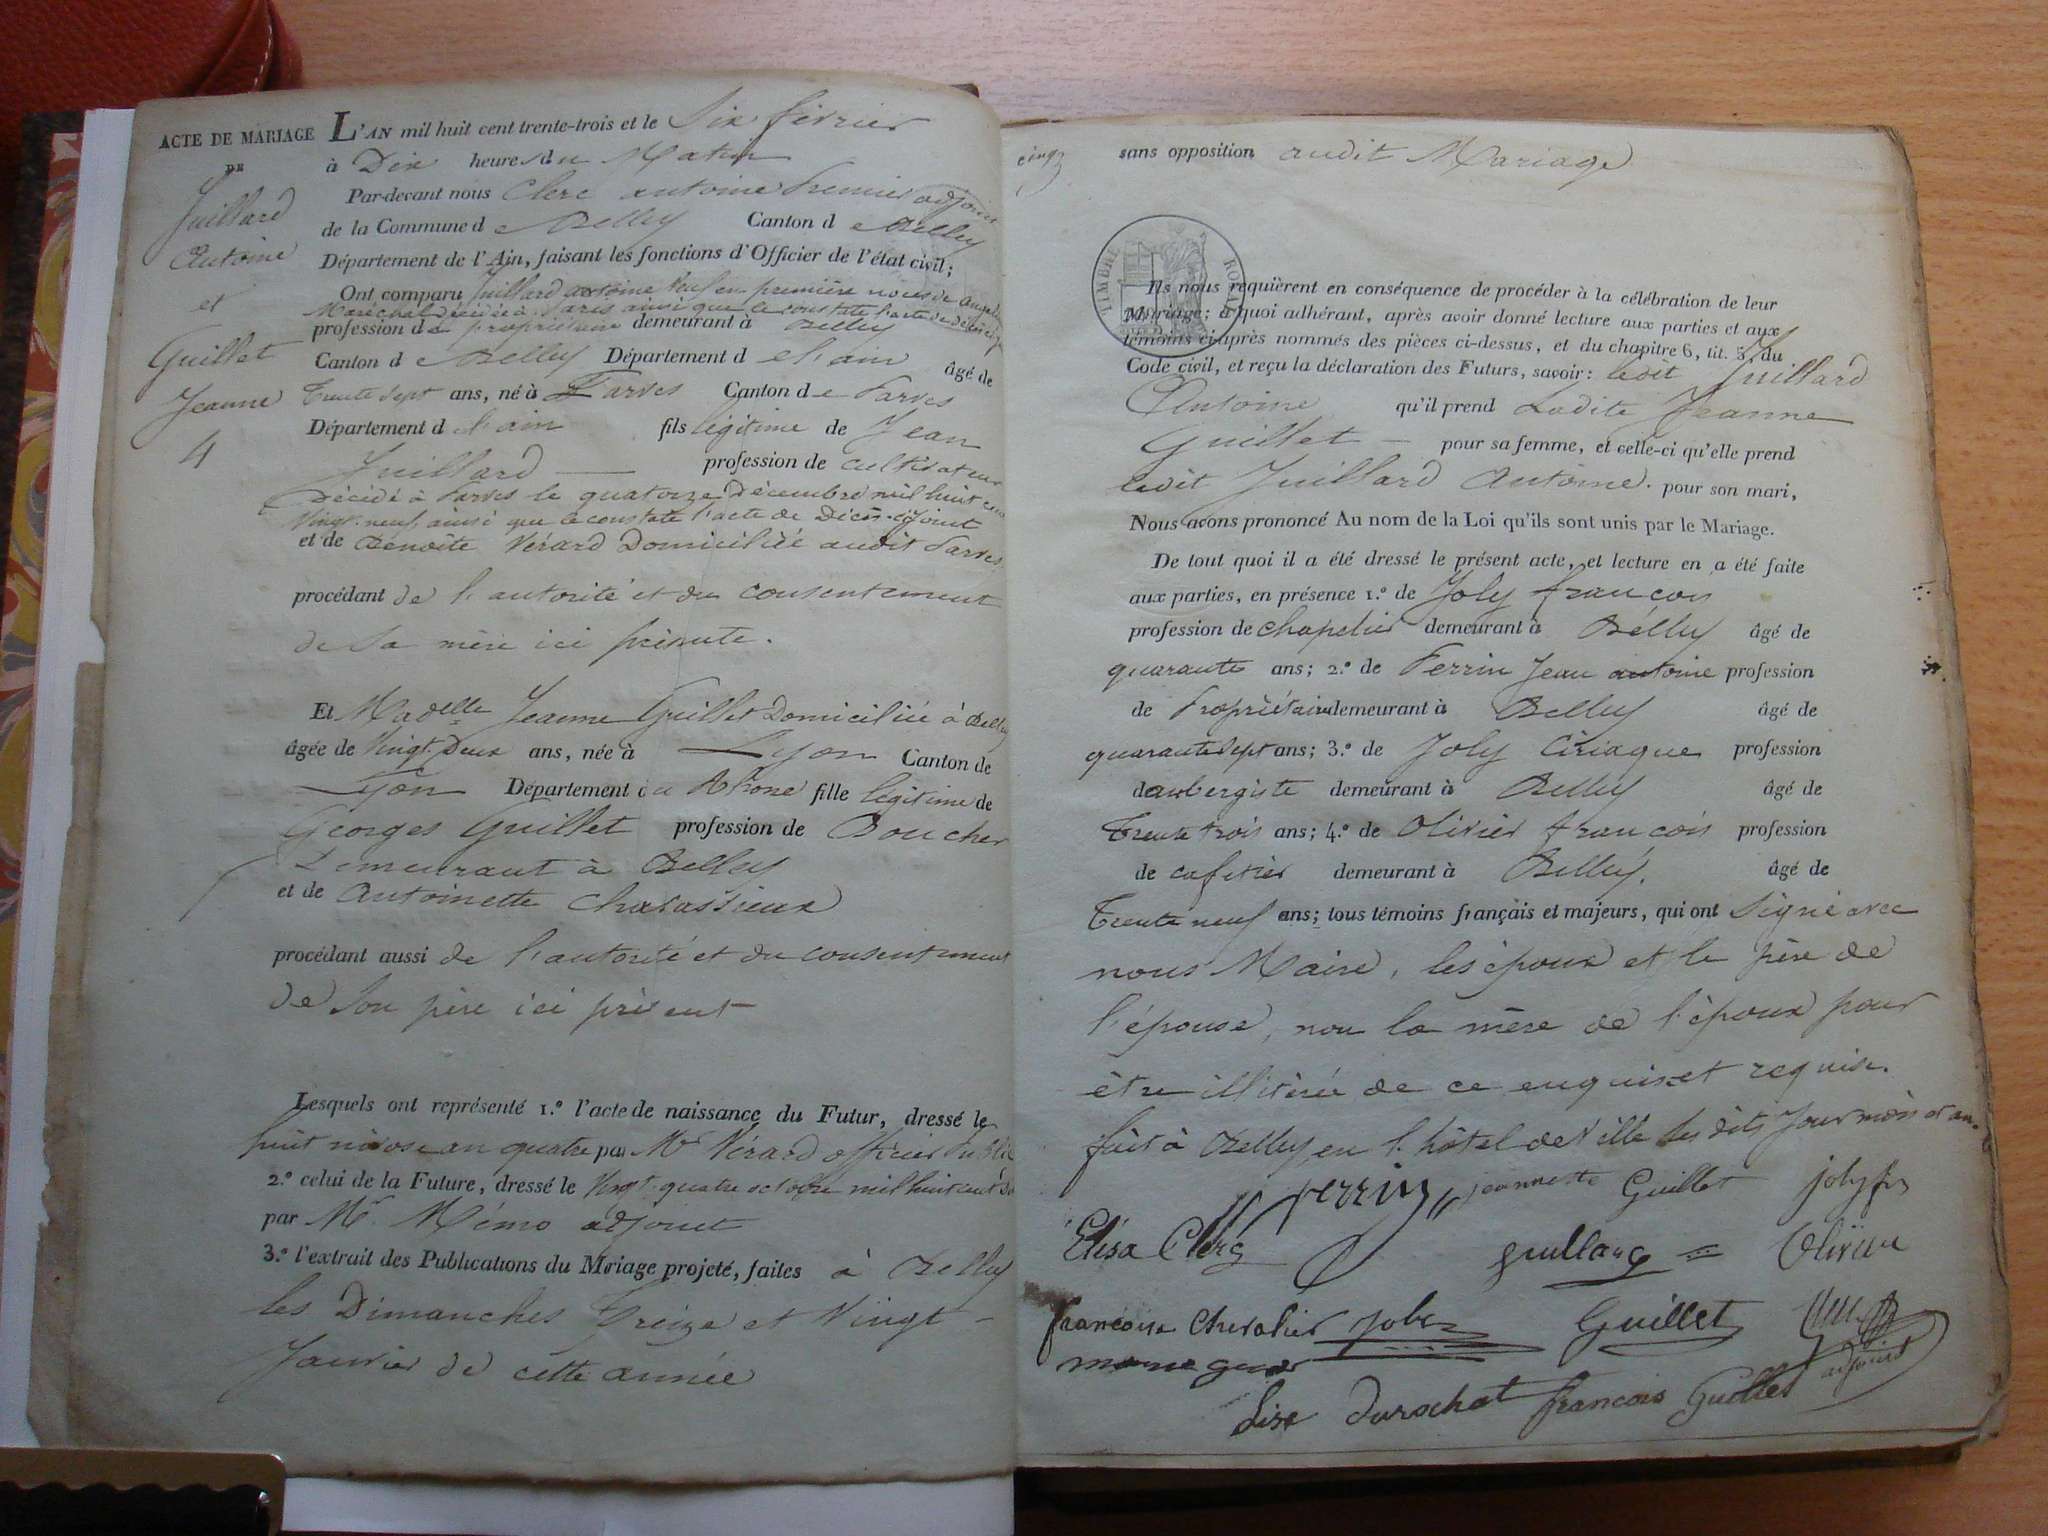 ACTE DE MARIAGE
DE
Juillard
Antoine
et
Guillet
Jeanne
4
L'AN mil huit cent trente-trois et le Six février
à Dix heures du Matin
Par-devant nous Clerc antoine Premier adjoint
de la Commune de Belley Canton de Belley
Département de l'Ain, faisant les fonctions d'Officier de l'état civil;
Ont comparu Juillard antoine Veuf en première noces de
Maréchal décédée à Paris ainsi que le constate l'acte de décès
profession de propriétaire demeurant à Belley
Canton de Belley Département de l'ain âgé de
Trente sept ans, né à Parves Canton de Parves
Département de l'ain fils légitime de Jean
Juillard profession de cultivateur
Décédé à Parves le quatorze Décembre mil huit cent
Vingt-neuf ainsi que le constate l'acte de Décès cijoint
et de Benoite Vérard Domiciliée audit Parves
procédant de l'autorité et du consentement
de Sa mère ici présente.
Et Madelle Jeanne Guillet Domiciliée à Belley
âgée de Vingt-Deux ans, née à Lyon Canton de
Lyon Département du Rhone fille légitime de
Georges Guillet profession de Boucher
Demeurant à Belley
et de Antoinette Charassieux
procédant aussi de l'autorité et du consentement
de Son père ici présent
Lesquels ont représenté 1.º l'acte de naissance du Futur, dressé le
huit nivose an quatre par Mr Vérard officier Public
2.º celui de la Future, dressé le Vingt-quatre octobre mil huit cent
par Mr. Mémo adjoint
3.º l'extrait des Publications du Mariage projeté, faites à Belley
les Dimanches Treize et Vingt
Janvier de cette année
cinq
sans opposition audit Mariage
TIMBRE ROYAL
Ils nous requièrent en conséquence de procéder à la célébration de leur
Mariage; à quoi adhérant, après avoir donné lecture aux parties et aux
témoins ci-après nommés des pièces ci-dessus, et du chapitre 6, tit. 5, du
Code civil, et reçu la déclaration des Futurs, savoir: ledit Juillard
Antoine qu'il prend Ladite Jeanne
Guillet pour sa femme, et celle-ci qu'elle prend
ledit Juillard Antoine. pour son mari,
Nous avons prononcé Au nom de la Loi qu'ils sont unis par le Mariage.
De tout quoi il a été dressé le présent acte, et lecture en a été faite
aux parties, en présence 1.º de Joly francois
profession de chapelier demeurant à Belley âgé de
quarante ans; 2.º de Perrin Jean antoine profession
de Propriétaire demeurant à Belley âgé de
quarante sept ans; 3.º de Joly Ciriaque profession
daubergiste demeurant à Belley âgé de
Trente trois ans; 4.º de Olivier francois profession
de cafetier demeurant à Belley. âgé de
Trente neuf ans; tous témoins français et majeurs, qui ont Signé avec
nous Maire, les époux et le père de
l'épouse, non la mère de l'époux pour
être illitérée de ce enquise et requise.
fait à Belley en l'hôtel de Ville les dits Jour mois et an.
Perrin jeannette Guillet joly fs
Élisa Clerc juillard Olivier
francoise Chevalier Joly Guillet
adjoint
Lise Durochat francois Guillet